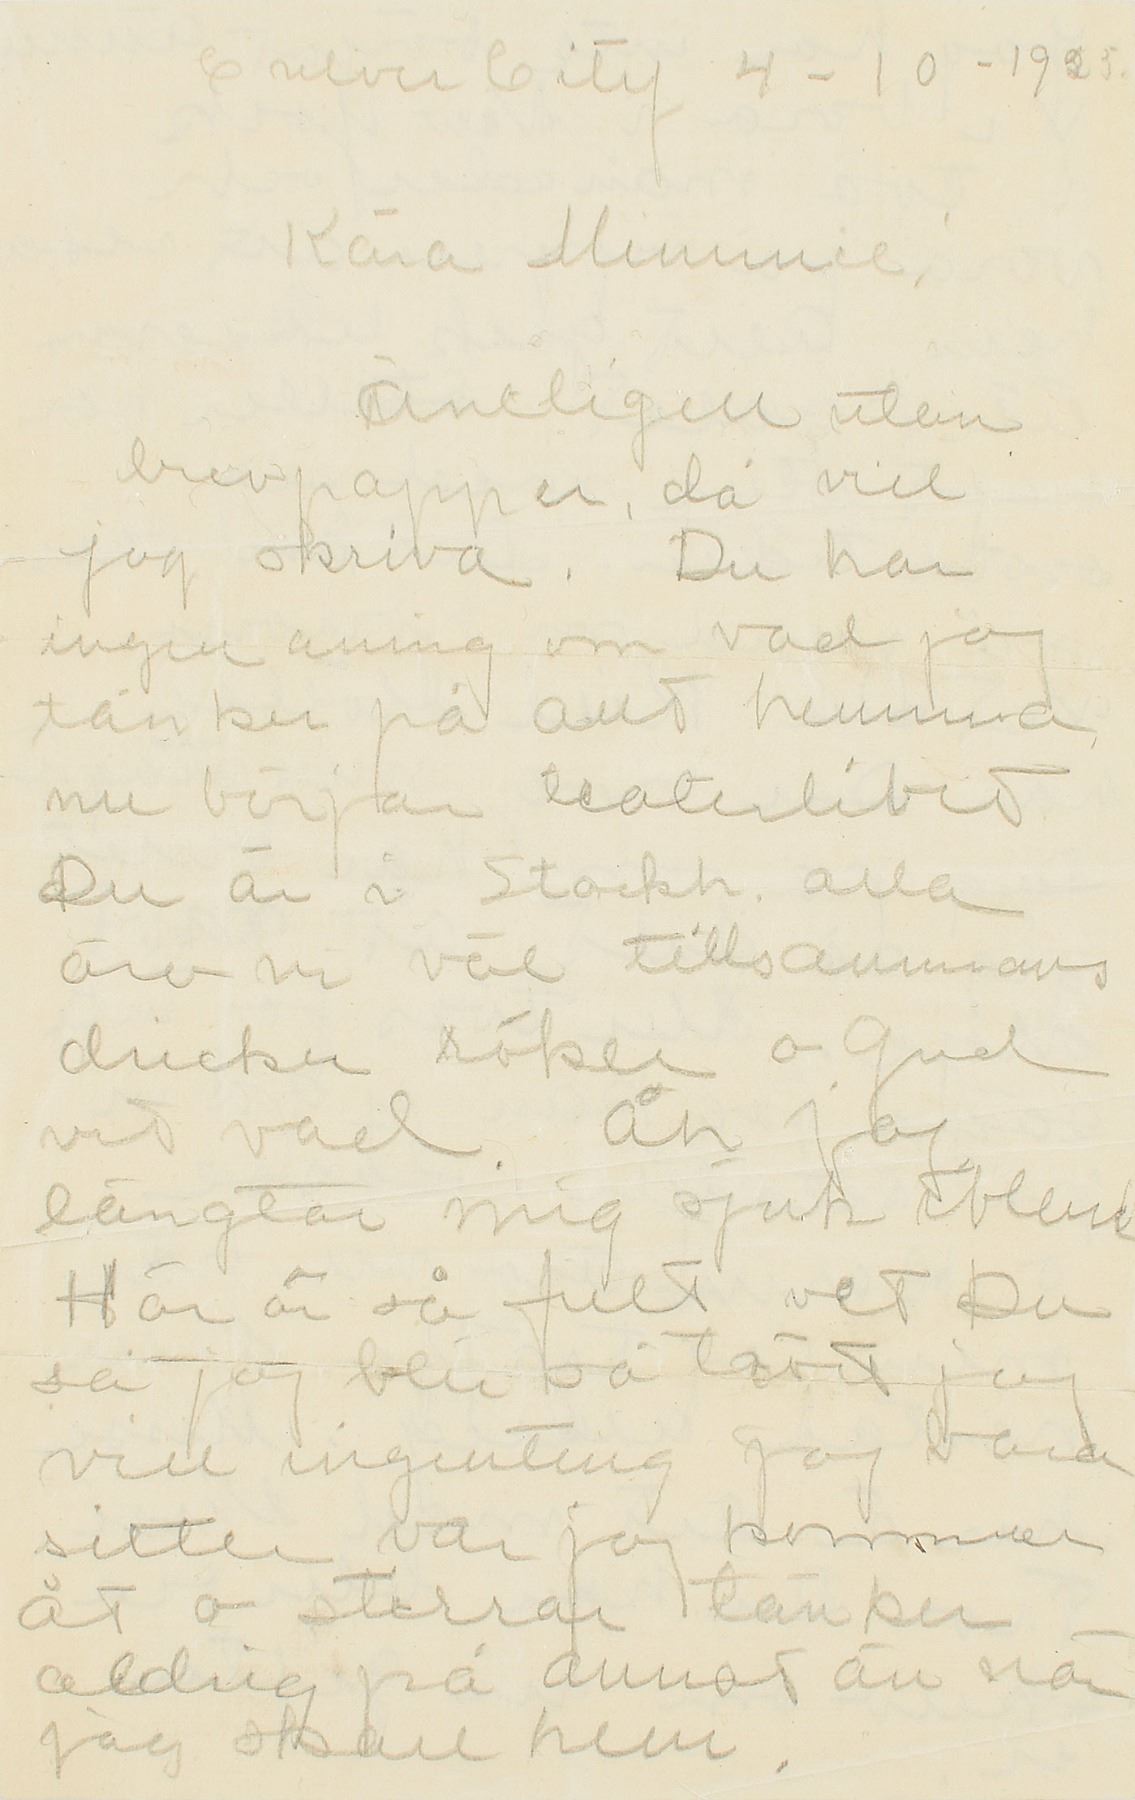 Culver City 4-10-1925.
Kära Mimmie!
Äntligen utan
brevpapper, då vill
jag skriva. Du har
ingen aning om vad jag
tänker på allt hemma,
nu börjar teaterlivet
Du är i Stockh. alla
äro ni väl tillsammans
dricker röker o Gud
vet vad. Åh jag
längtar mig sjuk ibland
Här är så fult vet Du
så jag blir så trött jag
vill ingenting jag bara
sitter var jag kommer
åt o stirrar tänker
aldrig på annat än när
jag skall hem.